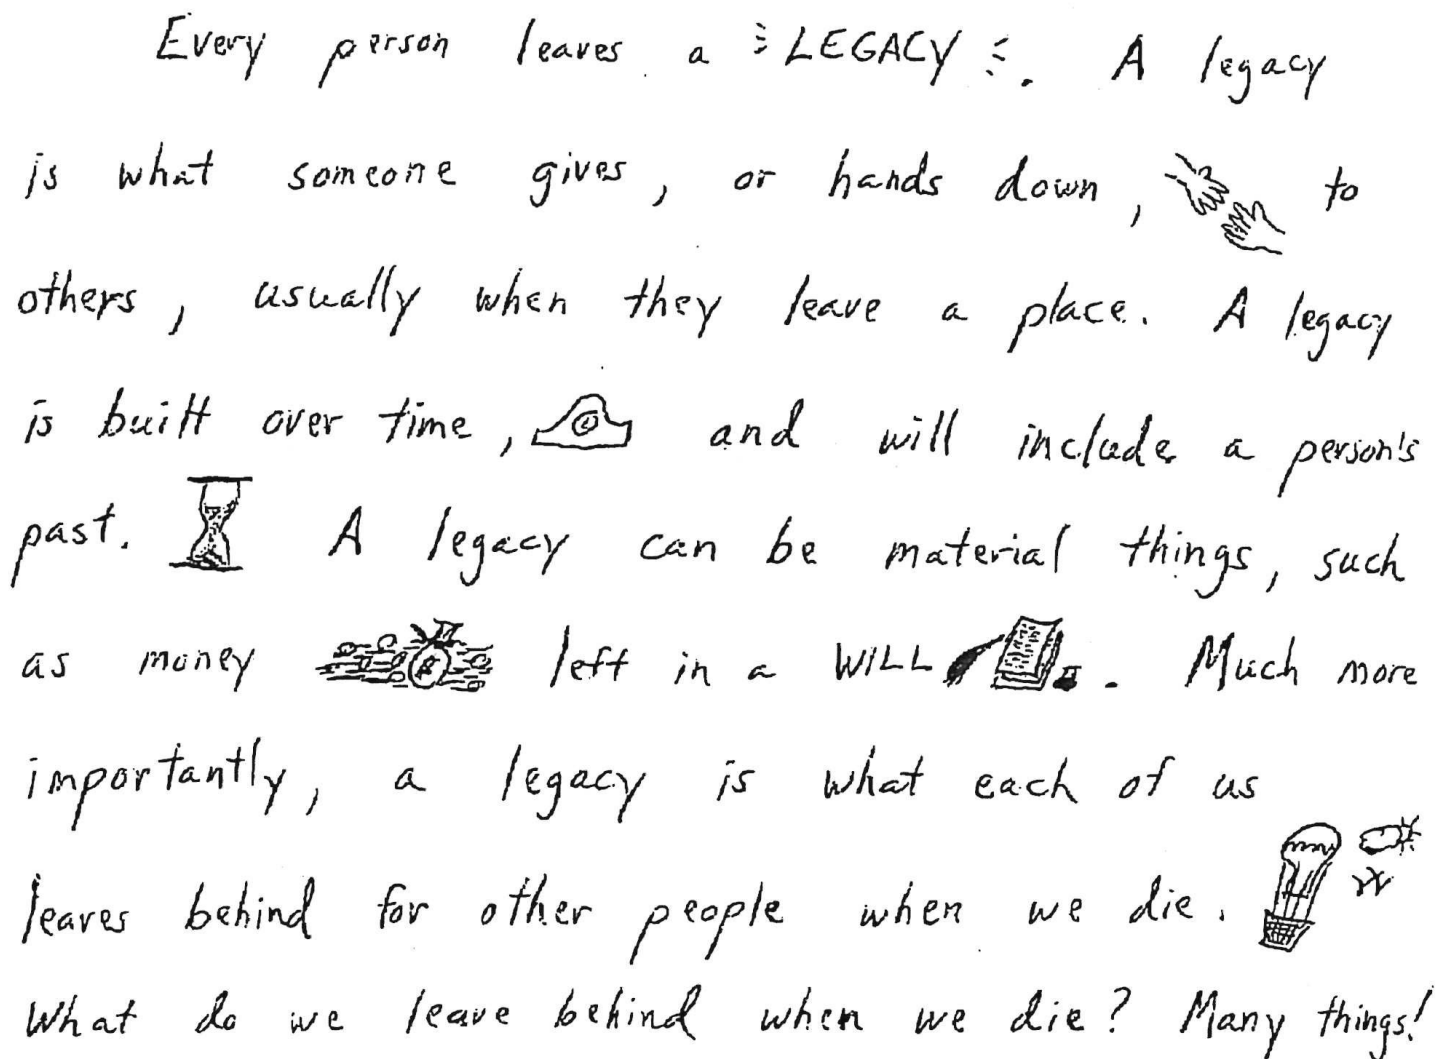 Every person leaves a LEGACY. A legacy
is what someone gives, or hands down, to
others, usually when they leave a place. A legacy
is built over time, and will include a person's
past. A legacy can be material things, such
as money $ left in a WILL. Much more
importantly, a legacy is what each of us
leaves behind for other people when we die.
What do we leave behind when we die? Many things!